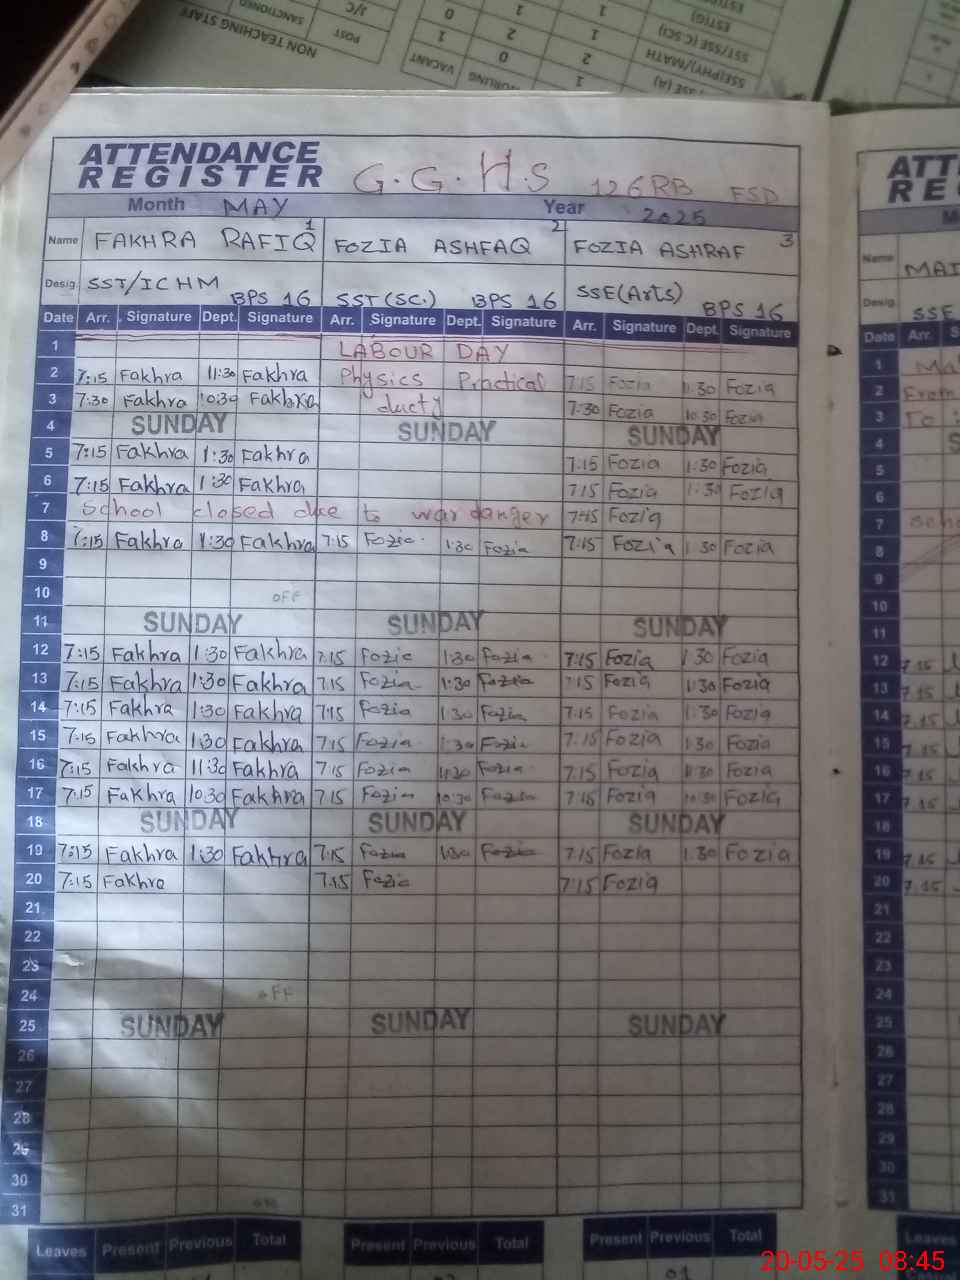 NON TEACHING STAFF
POST SANCTIONED
VACANT
SSE (A)
SSE(PHY)/MATH
SST/SSE (C.SCI)
ATTENDANCE
REGISTER G.G.H.S 126RB FSD
Month MAY Year 2025
Name FAKHRA RAFIQ 1 FOZIA ASHFAQ 2 FOZIA ASHRAF 3
Desig. SST/ICHM BPS 16 SST (SC.) BPS 16 SSE(Arts) BPS 16
Date Arr. Signature Dept. Signature Arr. Signature Dept. Signature Arr. Signature Dept. Signature
1 LABOUR DAY
2 7:15 Fakhra 11:30 Fakhra Physics Practical 7:15 Fozia 11:30 Fozia
3 7:30 Fakhra 10:30 Fakhra duty 7:30 Fozia 10:30 Fozia
4 SUNDAY SUNDAY SUNDAY
5 7:15 Fakhra 1:30 Fakhra 7:15 Fozia 1:30 Fozia
6 7:15 Fakhra 1:30 Fakhra 7:15 Fozia 1:30 Fozia
7 School closed due to war danger Fozia
8 7:15 Fakhra 1:30 Fakhra 7:15 Fozia 1:30 Fozia 7:15 Fozia 1:30 Fozia
9
10 OFF
11 SUNDAY SUNDAY SUNDAY
12 7:15 Fakhra 1:30 Fakhra 7:15 Fozia 1:30 Fozia 7:15 Fozia 1:30 Fozia
13 7:15 Fakhra 1:30 Fakhra 7:15 Fozia 1:30 Fozia 7:15 Fozia 1:30 Fozia
14 7:15 Fakhra 1:30 Fakhra 7:15 Fozia 1:30 Fozia 7:15 Fozia 1:30 Fozia
15 7:15 Fakhra 1:30 Fakhra 7:15 Fozia 1:30 Fozia 7:15 Fozia 1:30 Fozia
16 7:15 Fakhra 11:30 Fakhra 7:15 Fozia 11:30 Fozia 7:15 Fozia 11:30 Fozia
17 7:15 Fakhra 10:30 Fakhra 7:15 Fozia 10:30 Fozia 7:15 Fozia 10:30 Fozia
18 SUNDAY SUNDAY SUNDAY
19 7:15 Fakhra 1:30 Fakhra 7:15 Fozia 1:30 Fozia 7:15 Fozia 1:30 Fozia
20 7:15 Fakhra 7:15 Fozia 7:15 Fozia
21
22
23
24 OFF
25 SUNDAY SUNDAY SUNDAY
26
27
28
29
30
31
Leaves Present Previous Total Present Previous Total Present Previous Total
01
Name
Desig. SSE
Date Arr.
1
2 From
3 To
4
5
6
7
8
9
10
11
12 7:15
13 7:15
14 7:15
15 7:15
16 7:15
17 7:15
18
19 7:15
20 7:15
21
22
23
24
25
26
27
28
29
30
31
Leaves
20-05-25 08:45